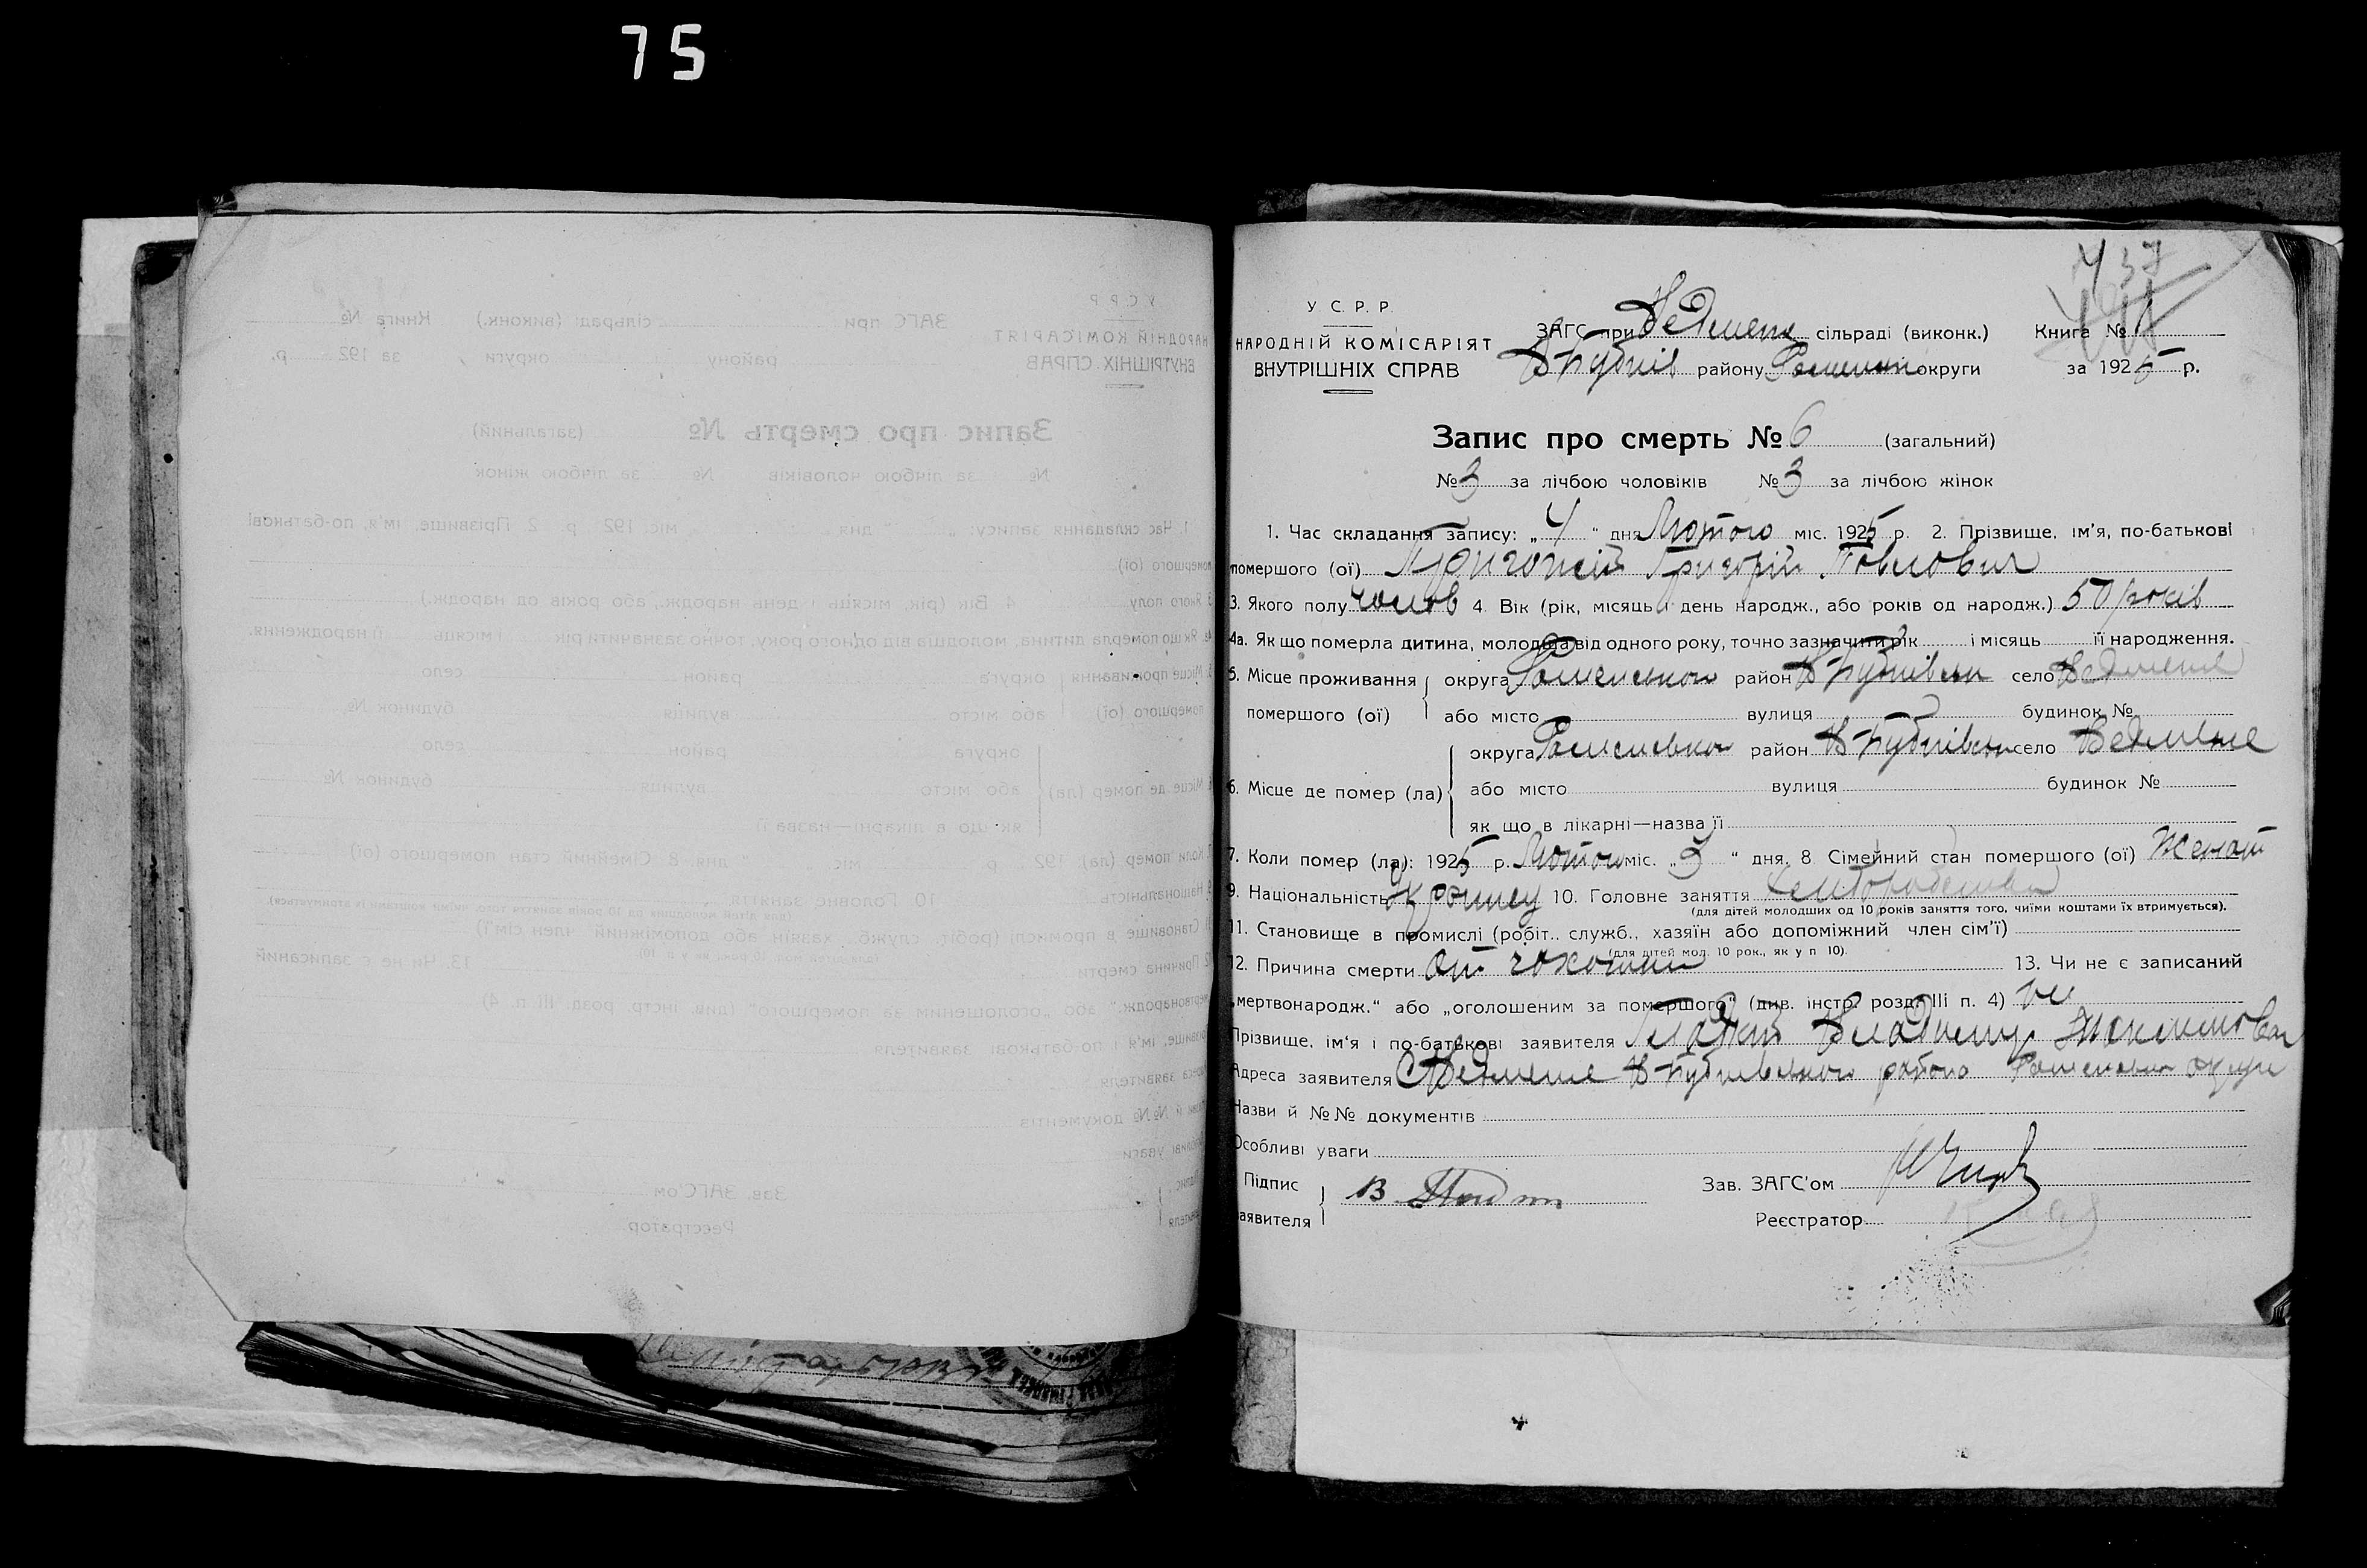 75
У С. Р. Р.
НАРОДНІЙ КОМІСАРІЯТ
ВНУТРІШНІХ СПРАВ
ЗАГС при Ведмеже сільраді (виконк.)
В-Бубнів району Роменськ округи
Книга №
за 1925 р.
Запис про смерть № 6 (загальний)
№ 3 за лічбою чоловіків № 3 за лічбою жінок
1. Час складання запису: „ 4 “ дня Лютого міс. 1925 р. 2. Прізвище, ім’я, по-батькові
помершого (ої) Пригожій Григорій Повлович
3. Якого полу чолов 4. Вік (рік, місяць і день народж., або років од народж.) 50 років
4а. Як що померла дитина, молодша від одного року, точно зазначити рік і місяць її народження.
5. Місце проживання округа Роменськой район В-Бубнівськ село Ведмеже
помершого (ої) або місто вулиця будинок №
округа Роменська район В-Бубнівськ село Ведмеже
6. Місце де помер (ла) або місто вулиця будинок №
як що в лікарні—назва її
7. Коли помер (ла): 1925 р. Лютого міс. „ 3 “ дня. 8 Сімейний стан помершого (ої) Женат
9. Національність 10. Головне заняття
(для дітей молодших од 10 років заняття того, чиїми коштами їх втримується).
11. Становище в промислі (робіт., служб., хазяїн або допоміжний член сім’ї)
(для дітей мол. 10 рок., як у п 10).
12. Причина смерти От чохотки 13. Чи не є записаний
„мертвонародж.“ або „оголошеним за помершого“ (див. інстр. розд. III п. 4) не
Прізвище, ім‘я і по-батькові заявителя
Адреса заявителя С Ведмеже В-Бубнівського района Роменськой округи
Назви й №№ документів
Особливі уваги
Підпис
заявителя В
Зав. ЗАГС’ом
Реєстратор